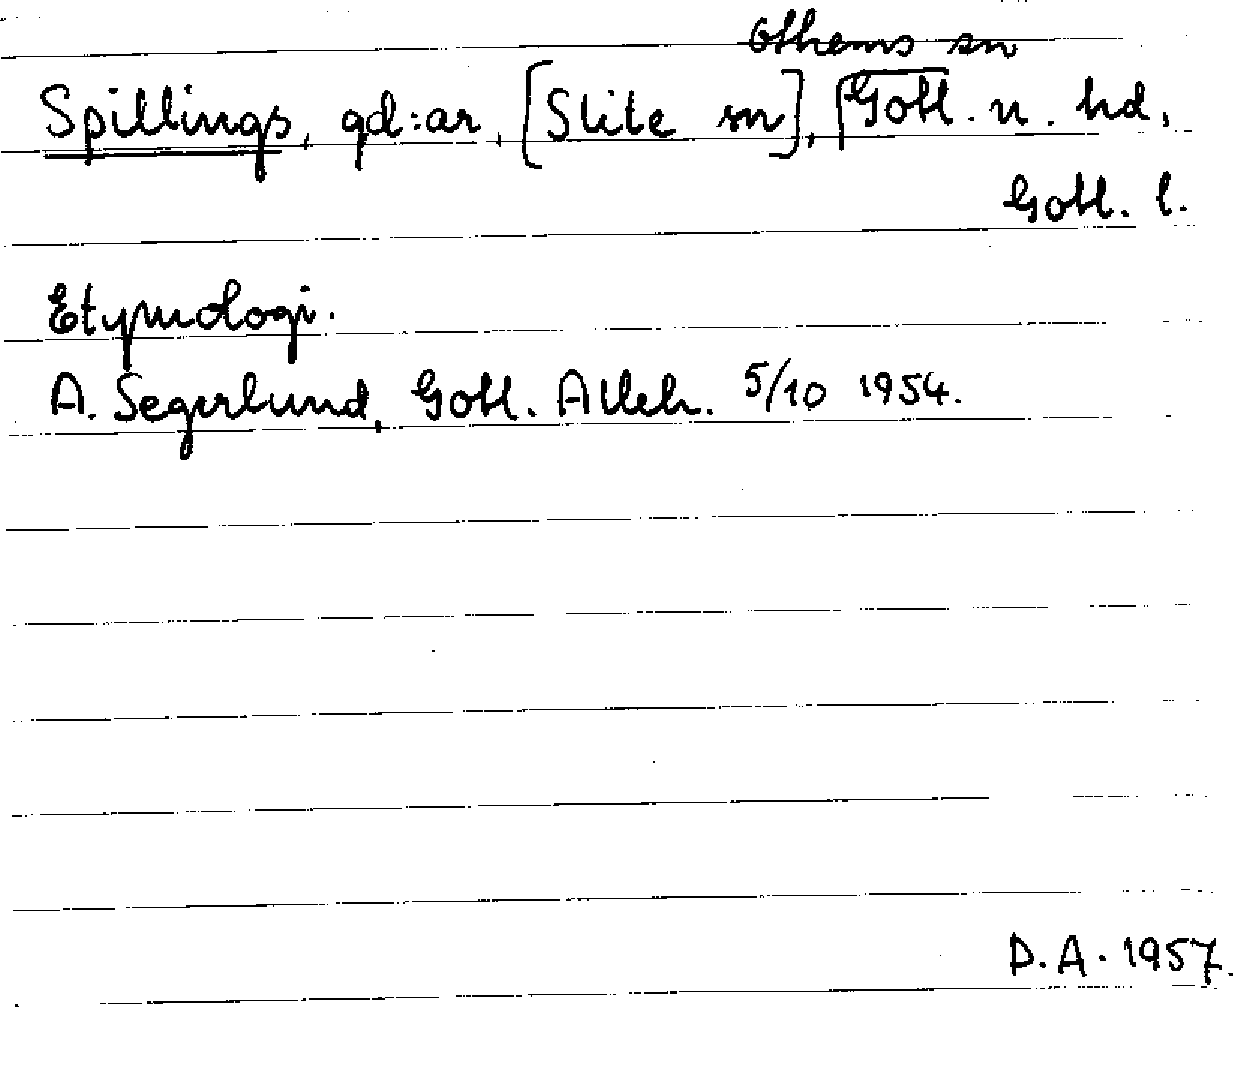 Othems sn
Spillings, gd:ar, [Slite sn], Gotl. n. hd,
Gotl. l.
Etymologi.
A. Segerlund, Gotl. Alleh. 5/10 1954.
D.A. 1957.